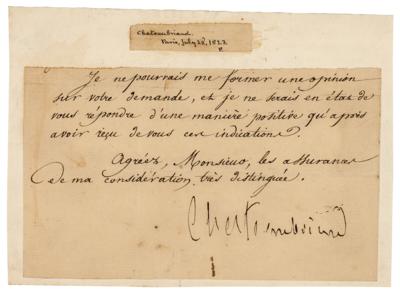 Chateaubriand.
Paris, July 28, 1822.
Je ne pourrais me former une opinion
sur votre demande, et je ne serais en état de
vous répondre d'une manière positive qu'après
avoir reçu de vous ces indications.
Agréez, Monsieur, les assurances
de ma considération très distinguée.
Chateaubriand